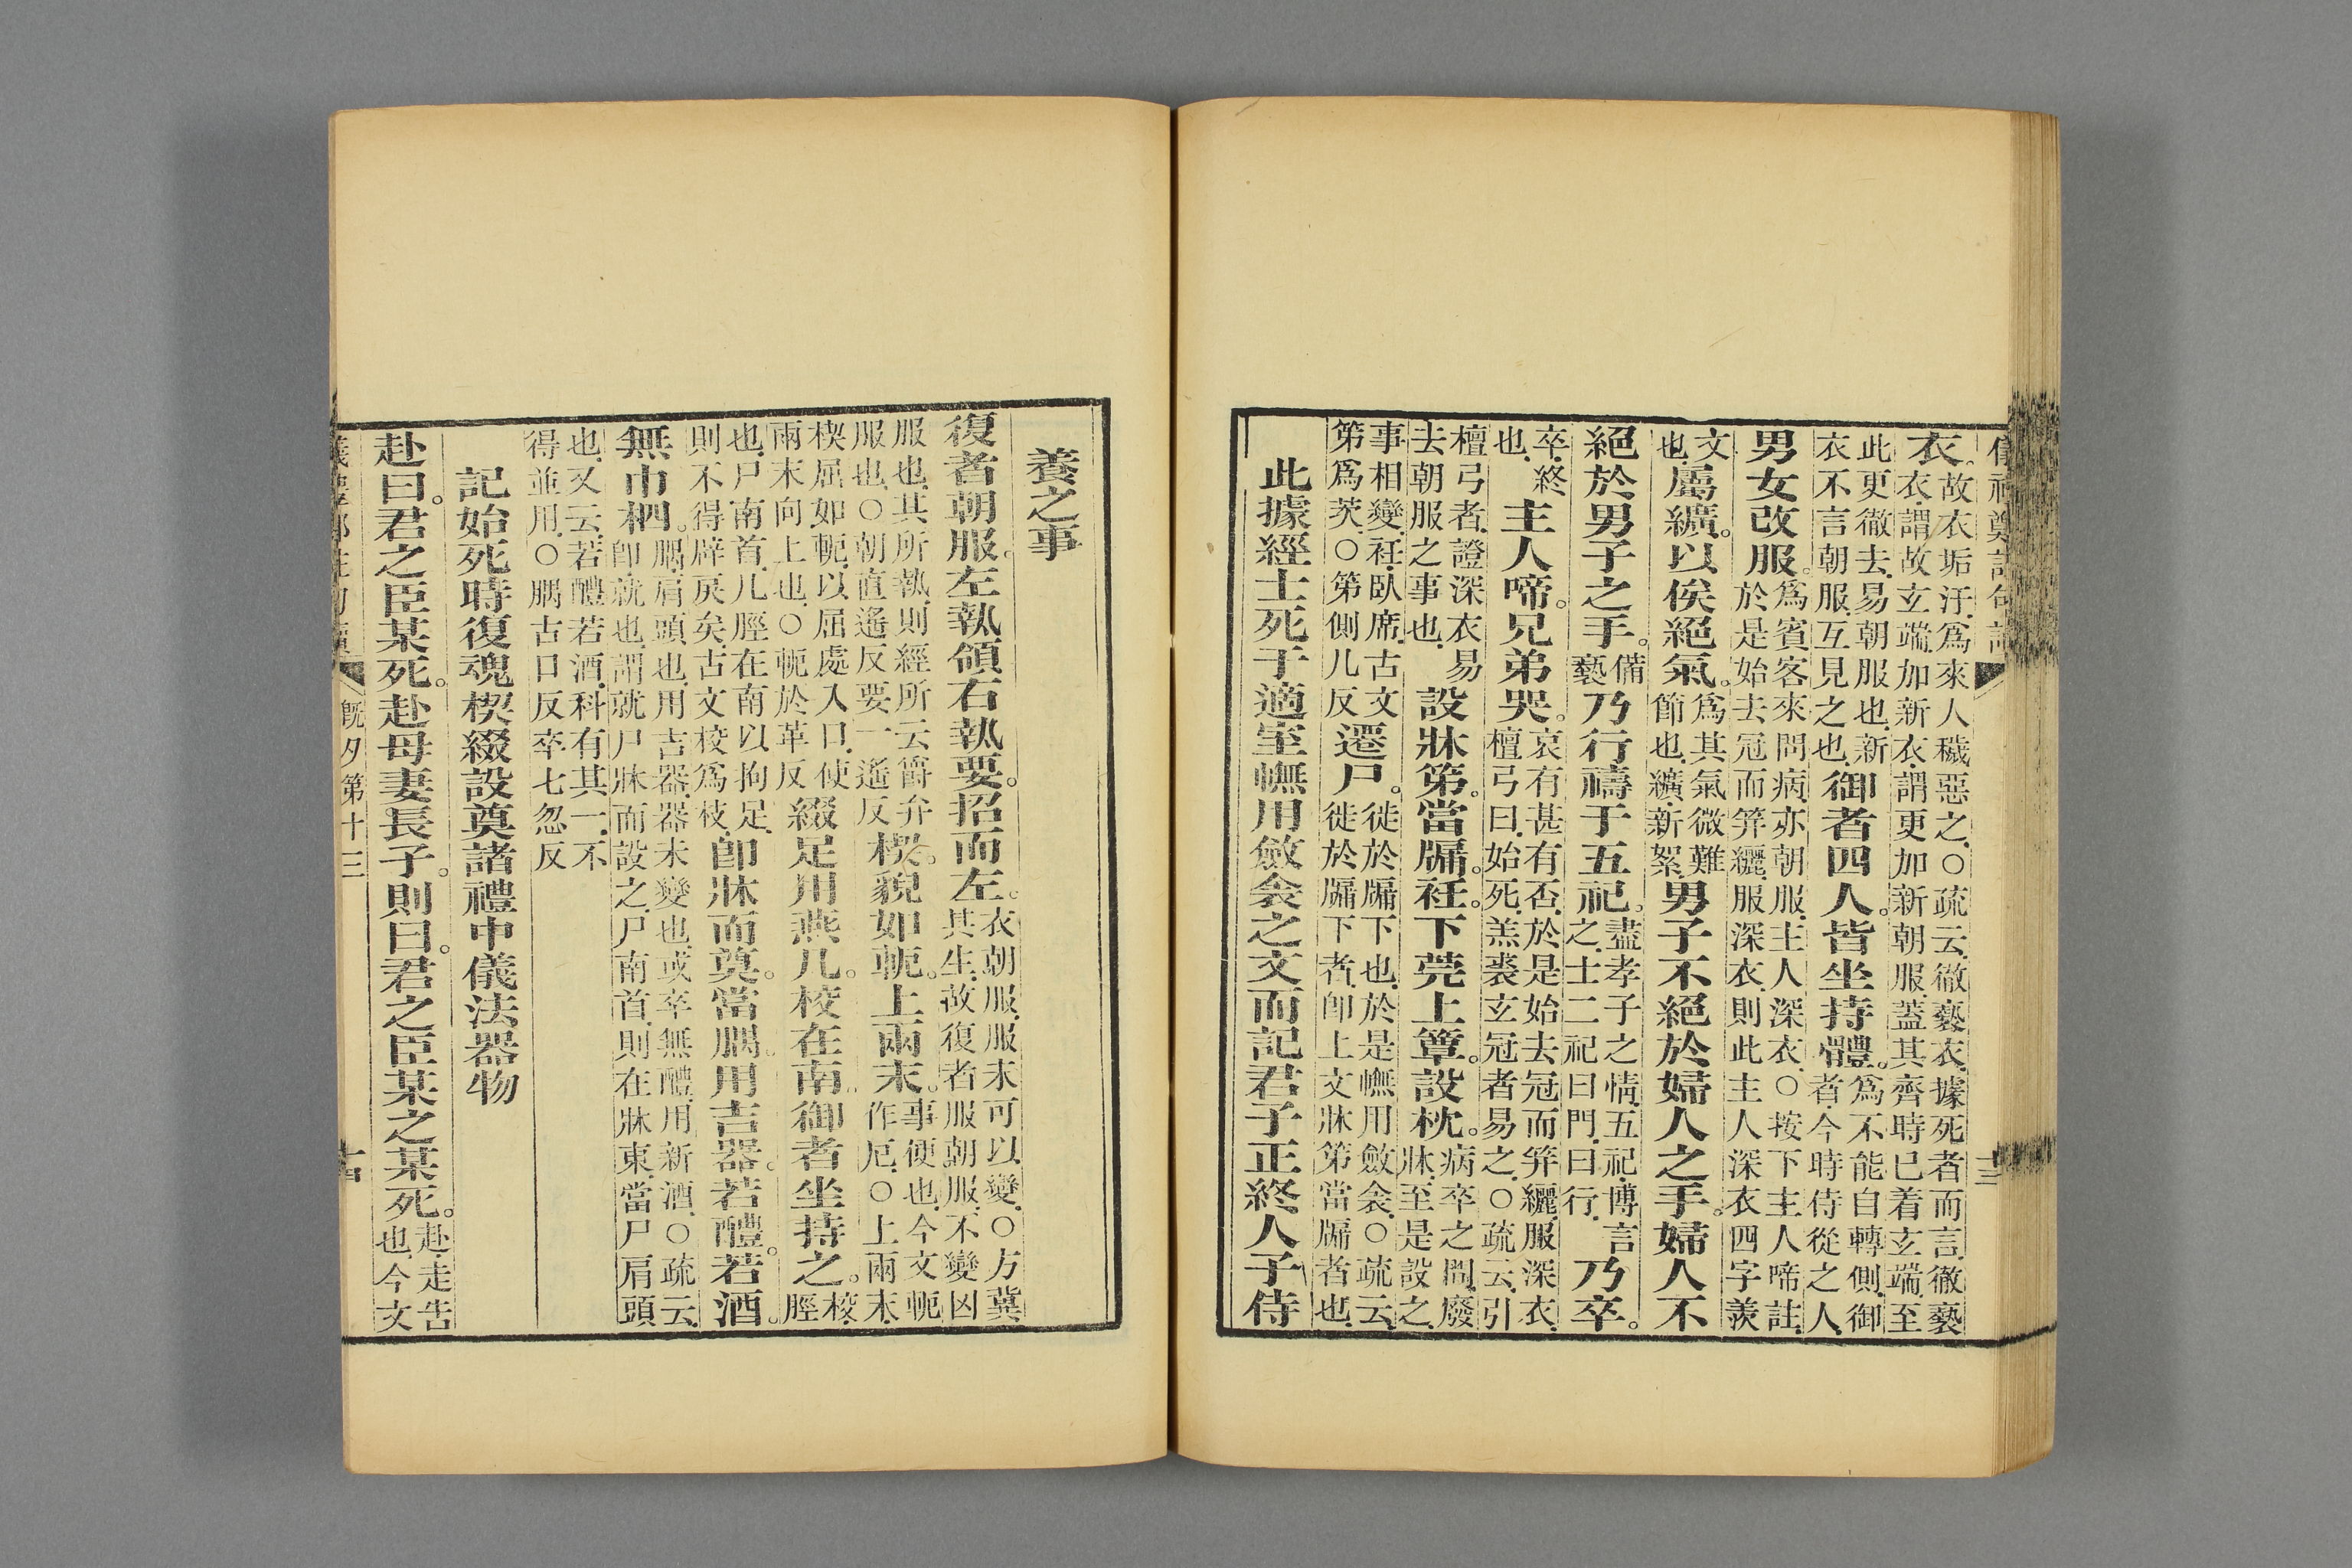 衣。故衣垢汙、爲來人穢惡之、○疏云、徹褻衣、據死者而言、徹褻
衣謂故玄端、加新衣、謂更加新朝服、蓋其齊時已着玄端、至
此更徹去、易朝服也、新
衣不言朝服、互見之也、御者四人。皆坐持體。爲不能自轉側、御
者、今時侍從之人、
男女改服。爲賓客來問病、亦朝服、主人深衣、○按下主人啼註、
於是始去冠而笄纚、服深衣、則此主人深衣四字羨
文
也、屬纊。以俟絕氣。爲其氣微難
節也、纊、新絮、男子不絕於婦人之手。婦人不
絕於男子之手。備
褻、乃行禱于五祀。盡孝子之情、五祀、博言
之、士二祀、曰門、曰行、乃卒。
卒、終
也、主人啼。兄弟哭。哀有甚有否、於是始去冠而笄纚、服深衣、
檀弓曰、始死、羔裘玄冠者易之、○疏云、引
檀弓者、證深衣易
去朝服之事也、設牀第。當牖。衽。下莞上簟。設枕。病卒之間、廢
牀、至是設之、
事相變、衽、臥席、古文
第爲茨、○第側几反遷尸。徙於牖下也、於是幠用斂衾、○疏云、
徙於牖下者、卽上文牀第當牖者也、
此據經士死于適室幠用斂衾之文而記君子正終人子侍
養之事
復者朝服。左執領。右執要。招而左。衣朝服、服未可以變、○方冀
其生、故復者服朝服、不變凶
服也、其所執、則經所云爵弁
服也、○朝直遙反要一遙反楔。貌如軛。上兩末。事便也、今文軛
作厄、○上兩末、
楔屈如軛、以屈處入口、使
兩末向上也、○軛於革反綴足用燕几。校在南。御者坐持之。校、
脛
也、尸南首、几脛在南以拘足、
則不得辟戾矣、古文校爲枝、卽牀而奠。當腢。用吉器。若醴。若酒。
無巾柶。腢、肩頭也、用吉器、器未變也、或卒無醴、用新酒、○疏云、
卽就也、謂就尸牀而設之、尸南首、則在牀東、當尸肩頭
也、又云、若醴若酒、科有其一、不
得並用、○腢古口反卒七忽反
記始死時復魂楔綴設奠諸禮中儀法器物
赴曰。君之臣某死。赴母妻長子。則曰。君之臣某之某死。赴、走告
也、今文
旣夕第十三